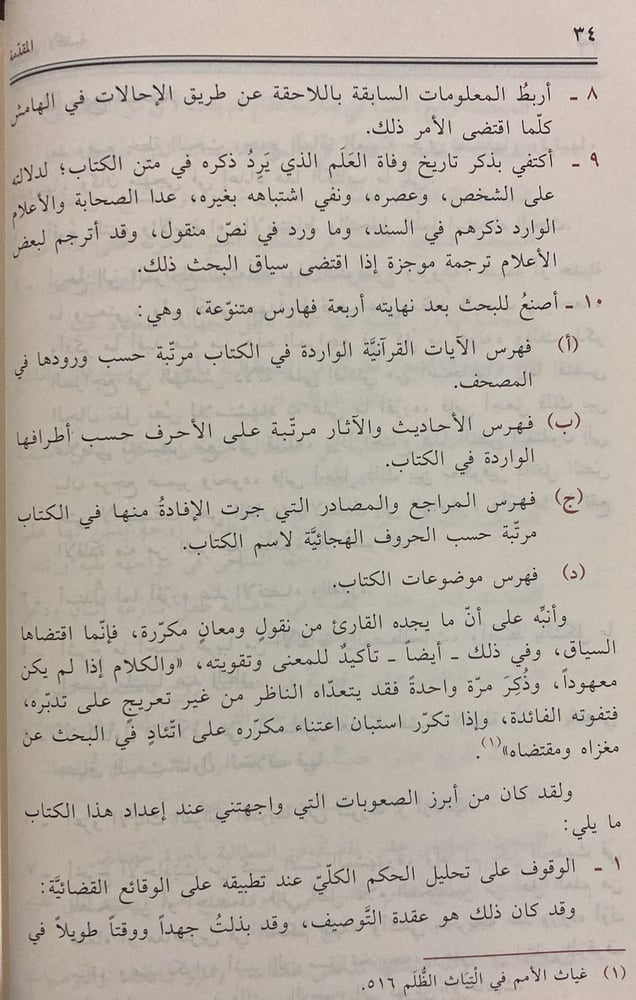 ٣٤
المقدّمة
٨ ـ أربطُ المعلومات السابقة باللاحقة عن طريق الإحالات في الهامش
كلّما اقتضى الأمر ذلك.
٩ ـ أكتفي بذكر تاريخ وفاة العَلَم الذي يَرِدُ ذكره في متن الكتاب؛ لدلالته
على الشخص، وعصره، ونفي اشتباهه بغيره، عدا الصحابة والأعلام
الوارد ذكرهم في السند، وما ورد في نصّ منقول، وقد أترجم لبعض
الأعلام ترجمة موجزة إذا اقتضى سياق البحث ذلك.
١٠ ـ أصنعُ للبحث بعد نهايته أربعة فهارس متنوّعة، وهي:
(أ) فهرس الآيات القرآنيَّة الواردة في الكتاب مرتّبة حسب ورودها في
المصحف.
(ب) فهرس الأحاديث والآثار مرتّبة على الأحرف حسب أطرافها
الواردة في الكتاب.
(ج) فهرس المراجع والمصادر التي جرت الإفادةُ منها في الكتاب
مرتّبة حسب الحروف الهجائيَّة لاسم الكتاب.
(د) فهرس موضوعات الكتاب.
وأنبِّه على أنّ ما يجده القارئ من نقولٍ ومعانٍ مكرّرة، فإنّما اقتضاها
السياق، وفي ذلك ـ أيضاً ـ تأكيدٌ للمعنى وتقويته، «والكلام إذا لم يكن
معهوداً، وذُكِرَ مرّة واحدةً فقد يتعدّاه الناظر من غير تعريجٍ على تدبّره،
فتفوته الفائدة، وإذا تكرّر استبان اعتناء مكرّره على اتّئادٍ في البحث عن
مغزاه ومقتضاه»(١).
ولقد كان من أبرز الصعوبات التي واجهتني عند إعداد هذا الكتاب
ما يلي:
١ ـ الوقوف على تحليل الحكم الكلّيّ عند تطبيقه على الوقائع القضائيَّة:
وقد كان ذلك هو عقدة التَّوصيف، وقد بذلتُ جهداً ووقتاً طويلاً في
(١) غياث الأمم في الْتِيَاث الظُّلَم ٥١٦.